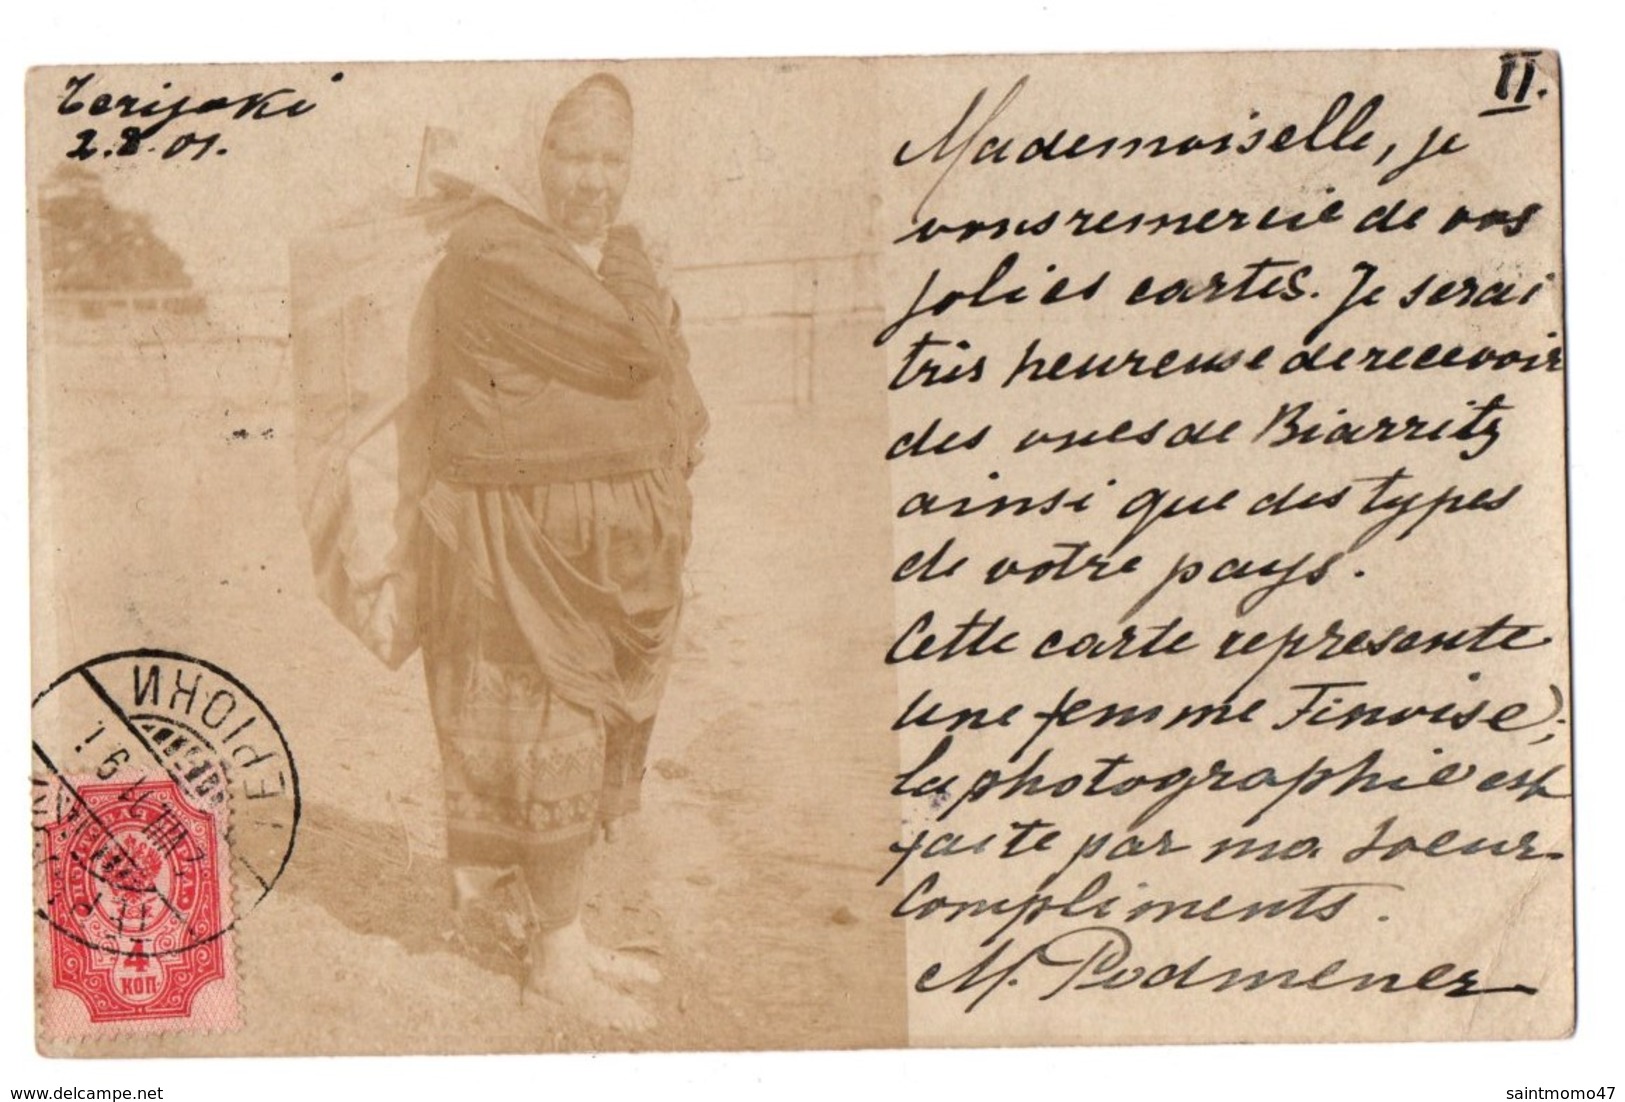 Terijoki
2.8.01.
II.
Mademoiselle, je
vous remercie de vos
jolies cartes. Je serai
très heureuse de recevoir
des vues de Biarritz
ainsi que des types
de votre pays.
Cette carte represente
une femme Finoise;
la photographie est
faite par ma soeur.
Compliments.
M. Podmener
ТЕРІОКИ
4
КОП
delcampe.net
saintmomo47